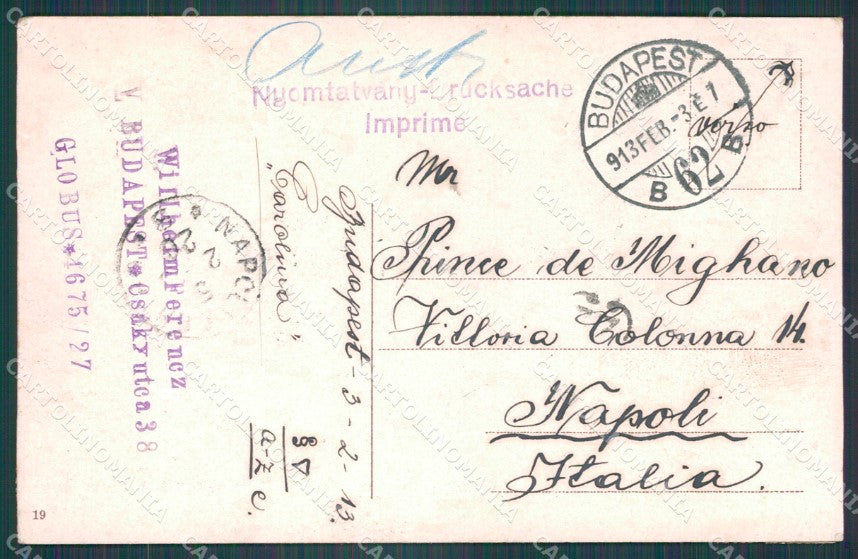 Nyomtatvány-Drucksache
Imprime
BUDAPEST
913 FEB.-3. E 7
B 62 B
verso
Willheim Ferencz
V BUDAPEST*Csáky utca 38
GLOBUS*1675/27
NAPOLI
"Carolina"
Budapest-3-2-13.
a-z c.
Mr
Prince de Mighano
Vittoria Colonna 14.
Napoli
Italia.
19
CARTOLINOMANIA